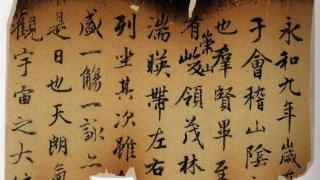 永和九年歲在
于會稽山陰
也羣賢畢至
有崇山峻領茂林
湍暎帶左右
列坐其次雖
盛一觴一詠亦
是日也天朗氣
觀宇宙之大